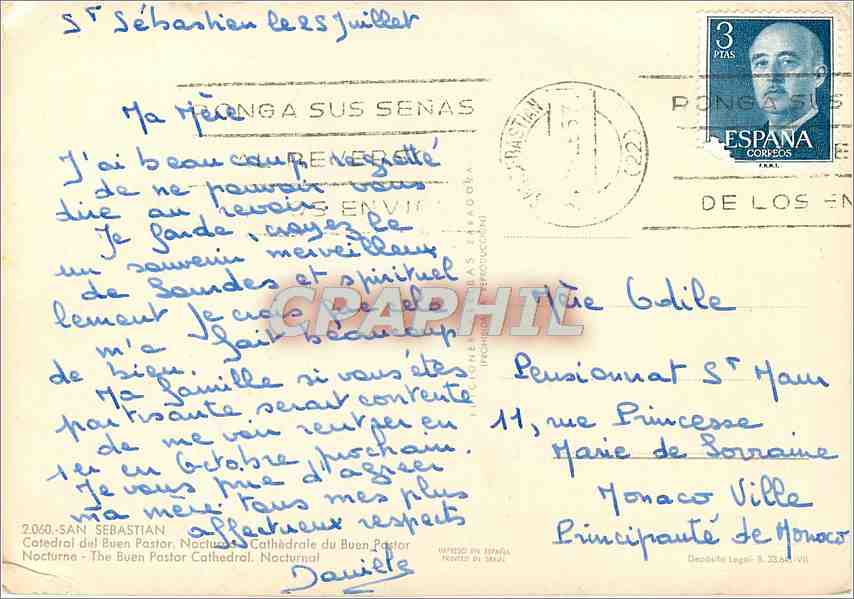 St Sébastien le 25 Juillet
Ma Mère
J'ai beaucoup regretté
de ne pouvoir vous
dire au revoir.
Je garde, croyez le
un souvenir merveilleux
de Lourdes et spirituel
lement je crois que cela
m'a fait beaucoup
de bien.
Ma famille si vous êtes
partisante serait contente
de me voir rentrer en
1er en Octobre prochain.
Je vous prie d'agréer
ma mère tous mes plus
affectueux respects
Danièle
2.060.-SAN SEBASTIAN
Catedral del Buen Pastor. Nocturno - Cathédrale du Buen Pastor
Nocturne - The Buen Pastor Cathedral. Nocturnal
PONGA SUS SEÑAS
REVERSO
SUS ENVI
SAN SEBASTIAN
(22)
PONGA SUS
DE LOS EN
3
PTAS
ESPAÑA
CORREOS
F.N.M.T.
EDICIONES ZARAGOZA
(PROHIBIDA REPRODUCCION)
CPAPHIL
Mère Odile
Pensionnat St Maur
11, rue Princesse
Marie de Lorraine
Monaco Ville
Principauté de Monaco
IMPRESO EN ESPAÑA
PRINTED IN SPAIN
Depósito Legal- B. 33.64 -VII